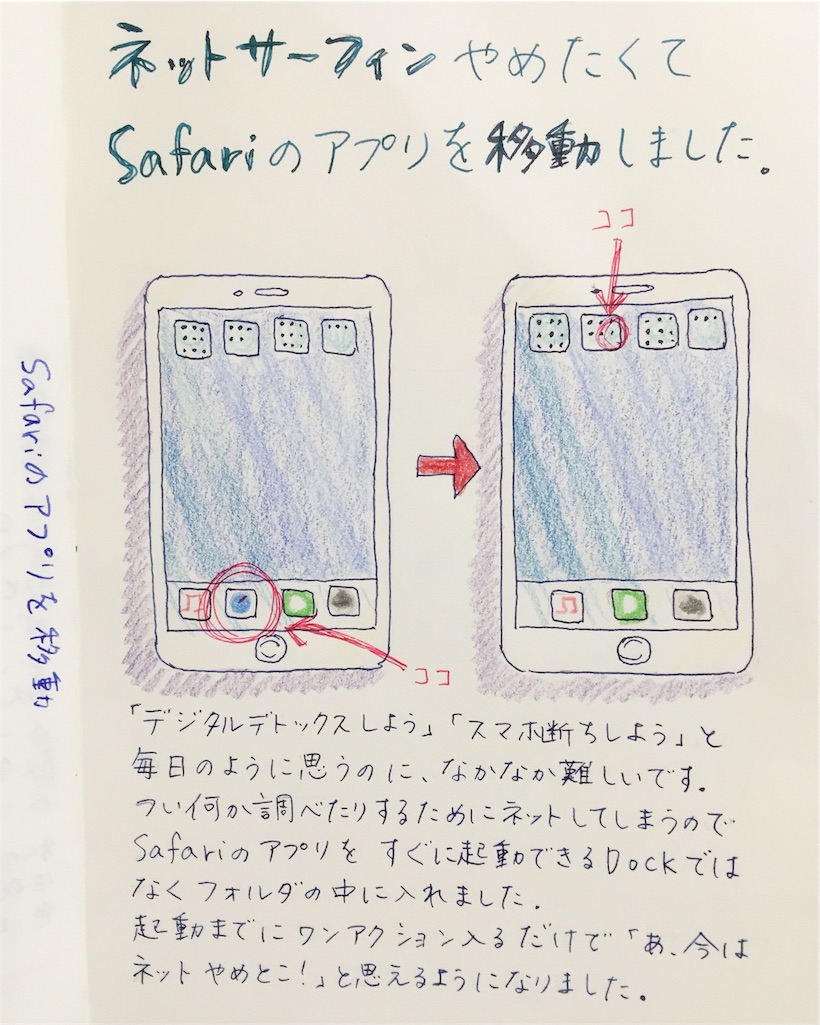 ネットサーフィンやめたくて
Safariのアプリを移動しました。
ココ
ココ
Safariのアプリを移動
「デジタルデトックスしよう」「スマホ断ちしよう」と
毎日のように思うのに、なかなか難しいです。
つい何か調べたりするためにネットしてしまうので
Safariのアプリを すぐに起動できるDockでは
なくフォルダの中に入れました。
起動までにワンアクション入るだけで「あ、今は
ネットやめとこ!」と思えるようになりました。